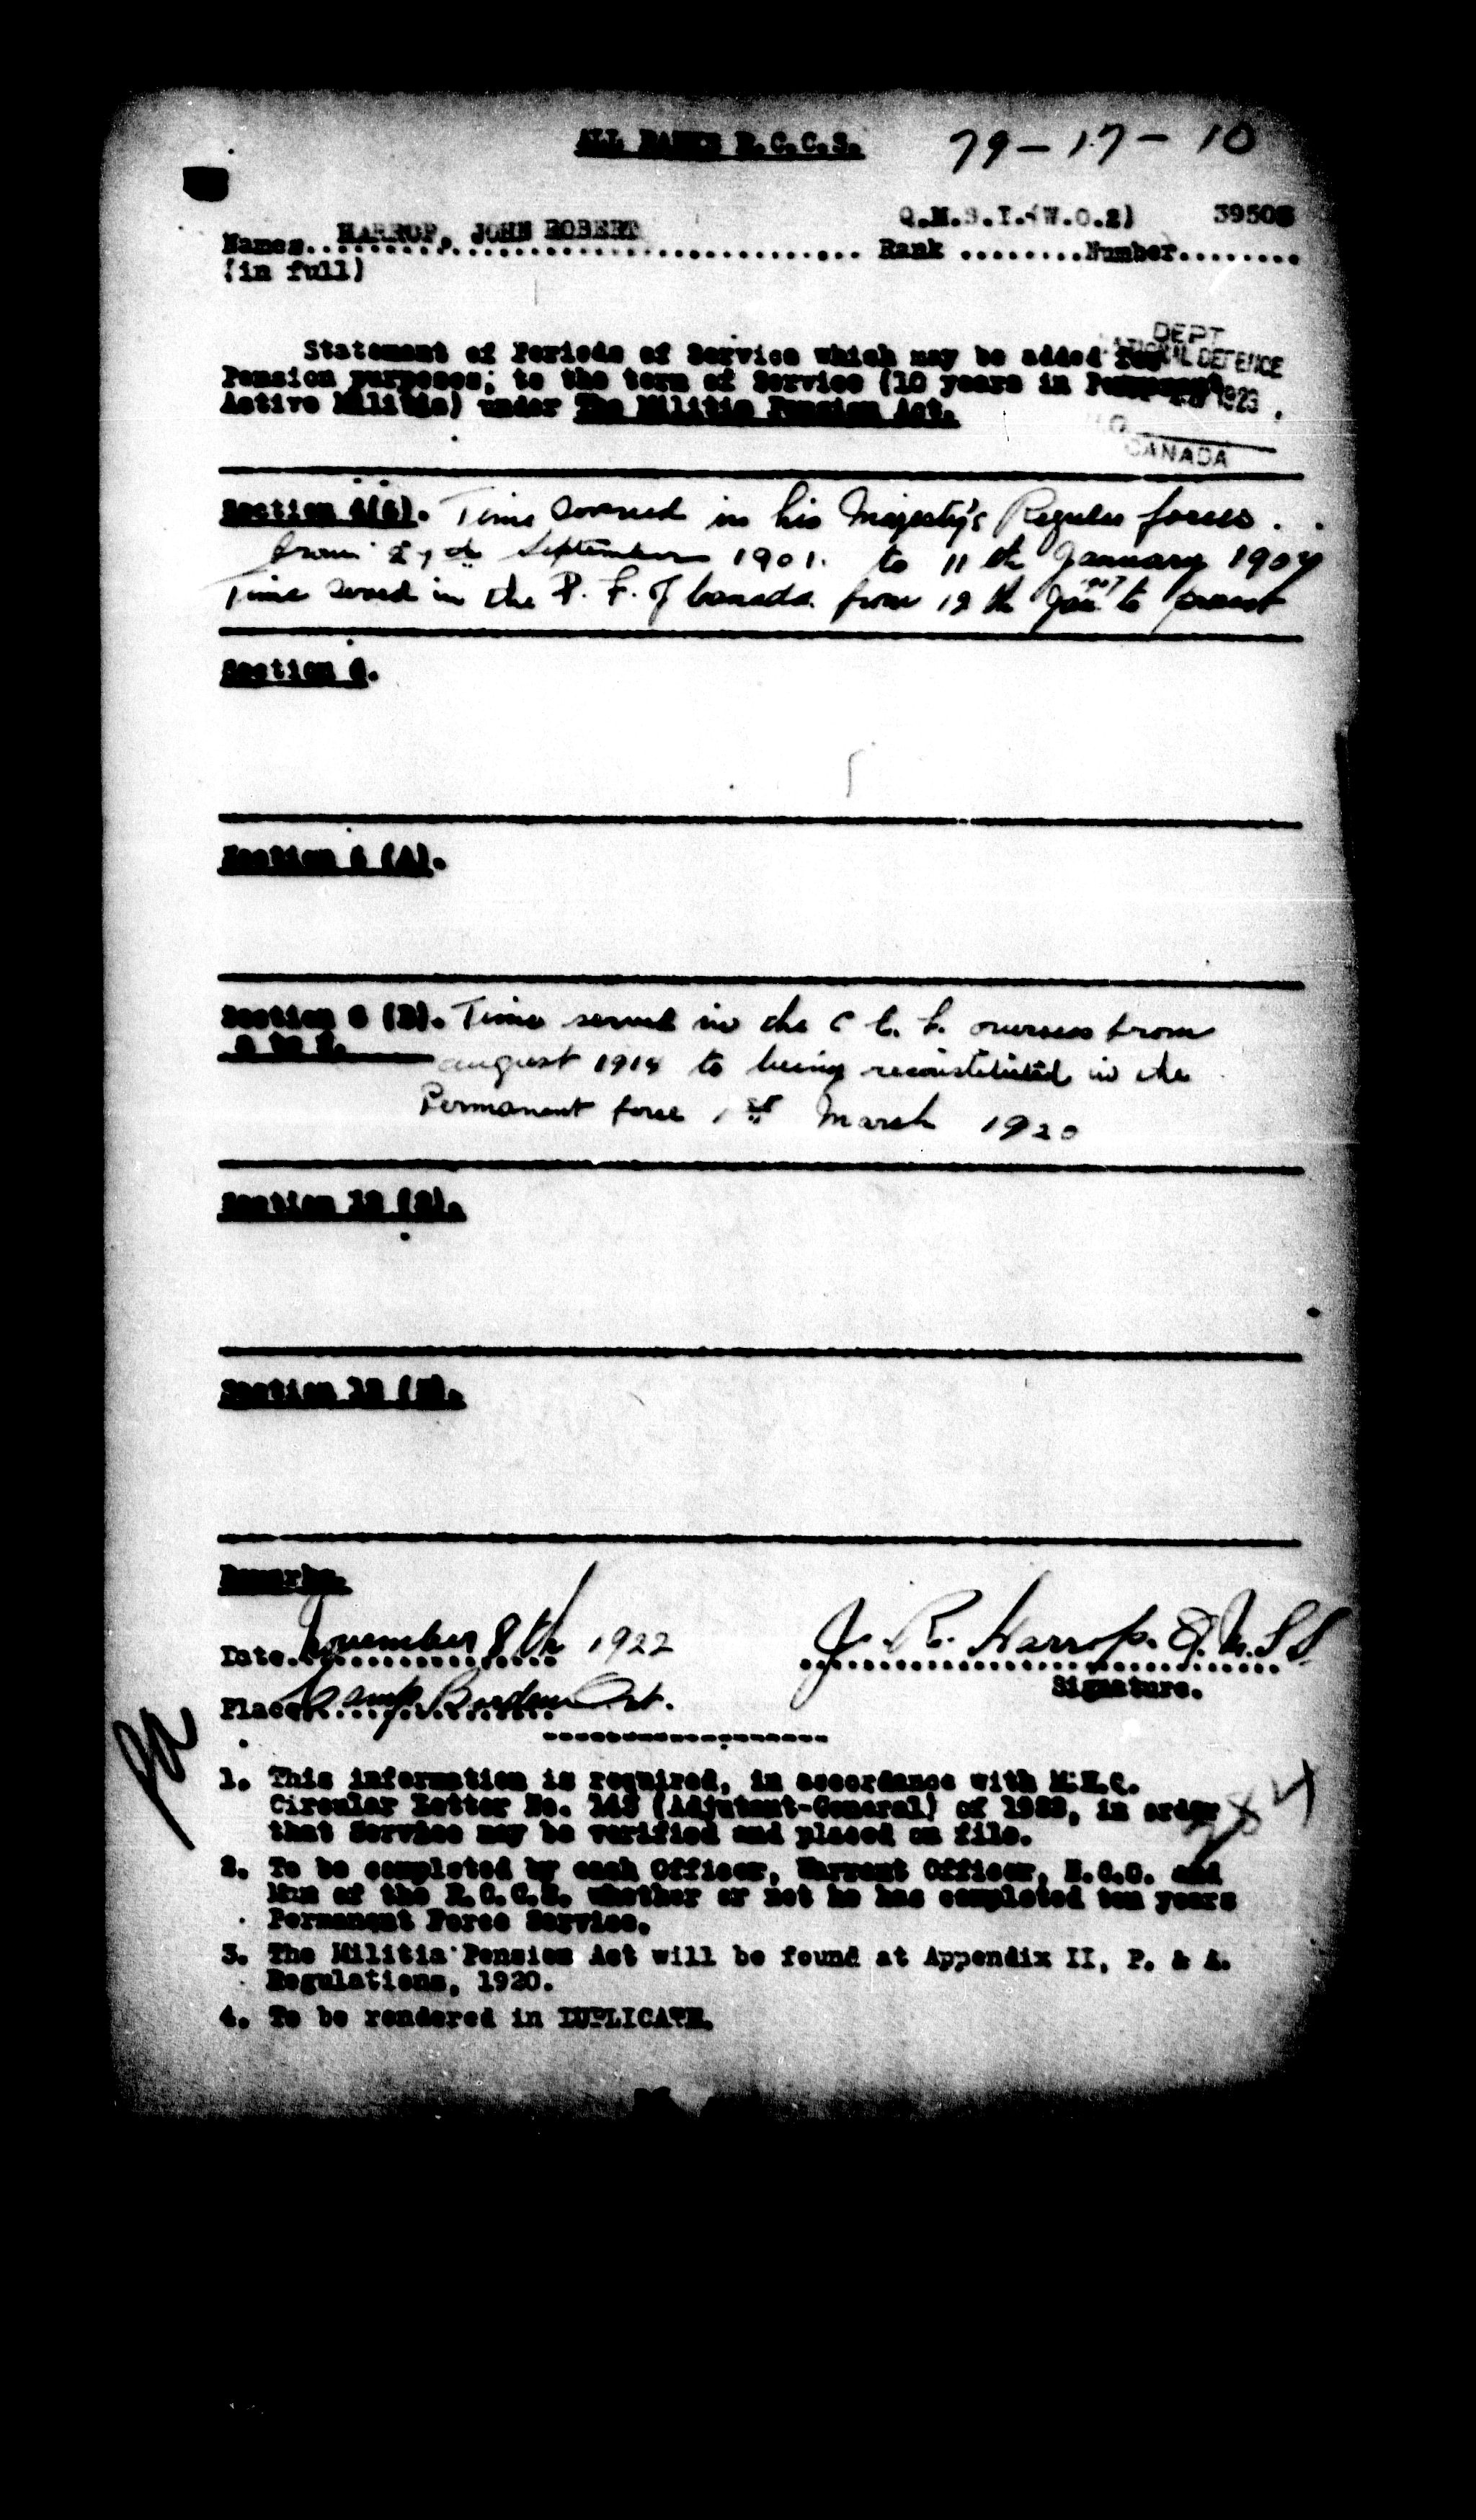 ALL RANKS R.C.C.S. 79-17-10
Q.M.S.I.(W.O.2) 39503
HARROP, JOHN ROBERT
Names........ Rank ........Number........
(in full)
DEPT
NATIONAL DEFENCE
1923
CANADA
Statement of Periods of Service which may be added for
Pension purposes; to the term of Service (10 years in Permanent
Active Militia) under The Militia Pension Act.
Section 4(A). Time served in his Majesty's Regular forces.
from September 1901. to 11th January 1907
Time served in the P. F. of Canada from 12th Jan 1907 to present
Section
Section 6 (A).
Section 6 (B). Time served in the C E. F. overseas from
august 1914 to being reconstituted in the
Permanent force 1st March 1920
Section 12
Section 12
Remarks.
Date November 8th 1922 J. R. Harrop. Q.M.S I.
Signature.
Place Camp Borden Ont.
1. This information is required, in accordance with M.H.Q.
Circular Letter No. (Adjutant-General) of 1922, in order
that Service may be verified and placed on file.
2. To be completed by each Officer, Warrant Officer, N.C.O. and
Man of the R.C.C.S. whether or not he has completed ten years
Permanent Force Service.
3. The Militia Pension Act will be found at Appendix II, P. & A.
Regulations, 1920.
4. To be rendered in DUPLICATE.